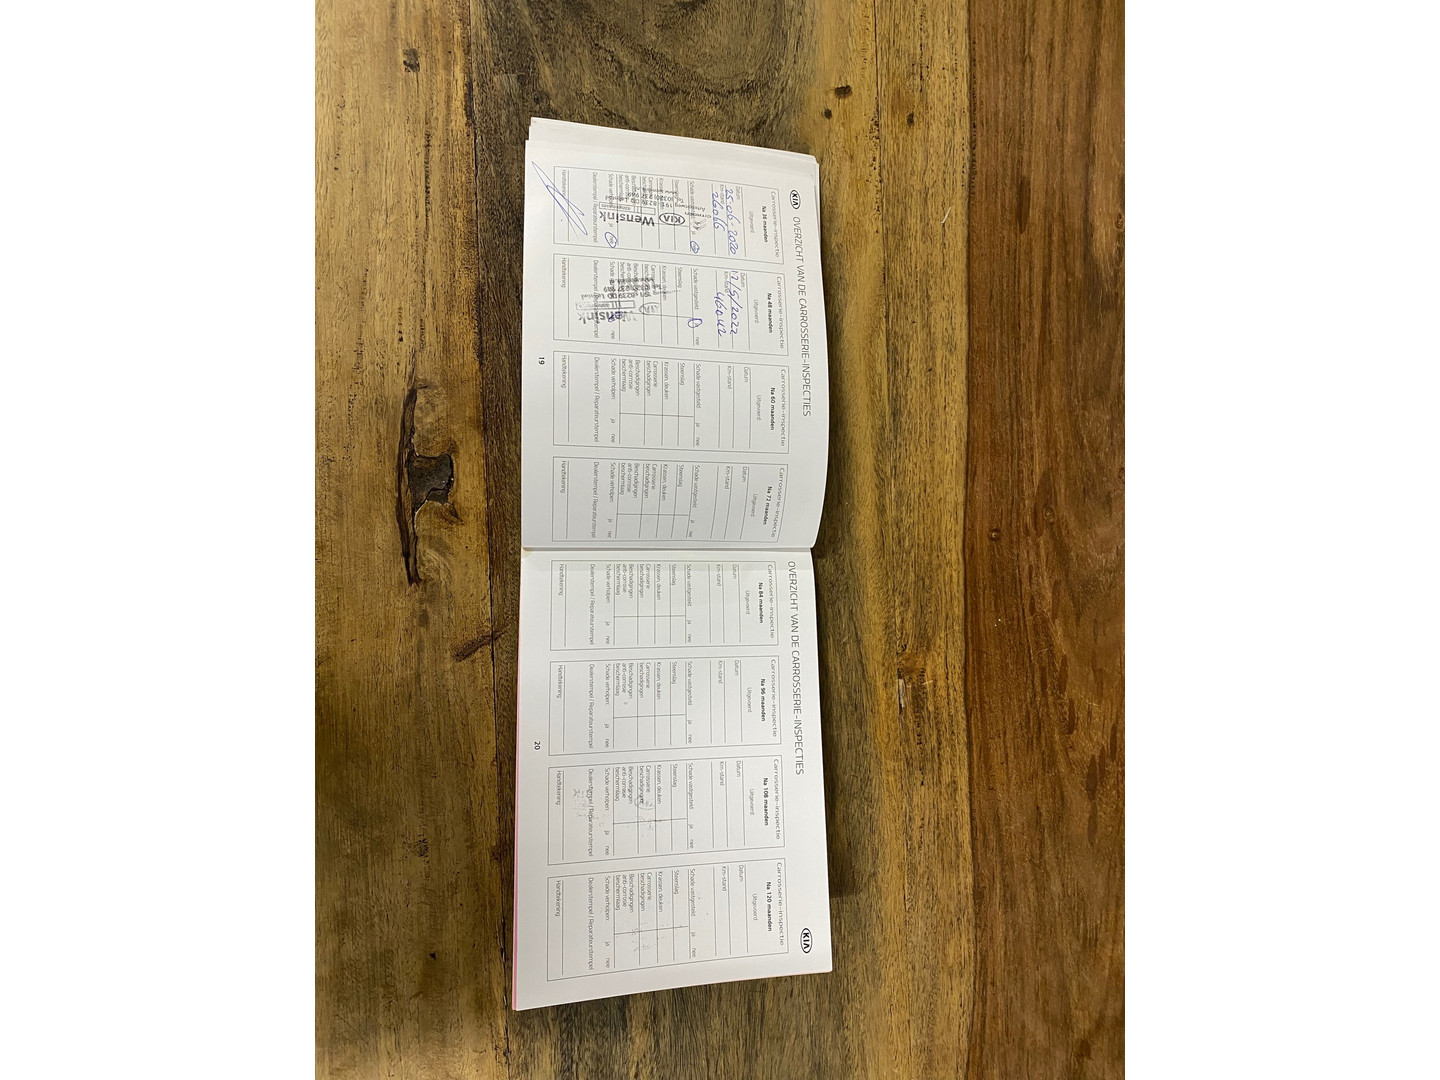 KIA
OVERZICHT VAN DE CARROSSERIE-INSPECTIES
Carrosserie-inspectie
Na 36 maanden
Uitgevoerd
Datum
25-06-2020
Km-stand
26066
Schade vastgesteld ja nee
Steenslag
Krassen, deuken
Carrosserie
beschadigingen
Beschadigingen
anti-corrosie
beschermlaag
Schade verholpen: ja nee
Dealerstempel / Reparateurstempel
KIA
Wensink
Handtekening
Carrosserie-inspectie
Na 48 maanden
Uitgevoerd
Datum
17/5/2022
Km-stand
46042
Schade vastgesteld ja nee
Steenslag
Krassen, deuken
Carrosserie
beschadigingen
Beschadigingen
anti-corrosie
beschermlaag
Schade verholpen: ja nee
Dealerstempel / Reparateurstempel
Wensink
Handtekening
Carrosserie-inspectie
Na 60 maanden
Uitgevoerd
Datum
Km-stand
Schade vastgesteld ja nee
Steenslag
Krassen, deuken
Carrosserie
beschadigingen
Beschadigingen
anti-corrosie
beschermlaag
Schade verholpen: ja nee
Dealerstempel / Reparateurstempel
Handtekening
Carrosserie-inspectie
Na 72 maanden
Uitgevoerd
Datum
Km-stand
Schade vastgesteld ja nee
Steenslag
Krassen, deuken
Carrosserie
beschadigingen
Beschadigingen
anti-corrosie
beschermlaag
Schade verholpen: ja nee
Dealerstempel / Reparateurstempel
Handtekening
19
OVERZICHT VAN DE CARROSSERIE-INSPECTIES
KIA
Carrosserie-inspectie
Na 84 maanden
Uitgevoerd
Datum
Km-stand
Schade vastgesteld ja nee
Steenslag
Krassen, deuken
Carrosserie
beschadigingen
Beschadigingen
anti-corrosie
beschermlaag
Schade verholpen: ja nee
Dealerstempel / Reparateurstempel
Handtekening
Carrosserie-inspectie
Na 96 maanden
Uitgevoerd
Datum
Km-stand
Schade vastgesteld ja nee
Steenslag
Krassen, deuken
Carrosserie
beschadigingen
Beschadigingen
anti-corrosie
beschermlaag
Schade verholpen: ja nee
Dealerstempel / Reparateurstempel
Handtekening
Carrosserie-inspectie
Na 108 maanden
Uitgevoerd
Datum
Km-stand
Schade vastgesteld ja nee
Steenslag
Krassen, deuken
Carrosserie
beschadigingen
Beschadigingen
anti-corrosie
beschermlaag
Schade verholpen: ja nee
Dealerstempel / Reparateurstempel
Handtekening
Carrosserie-inspectie
Na 120 maanden
Uitgevoerd
Datum
Km-stand
Schade vastgesteld ja nee
Steenslag
Krassen, deuken
Carrosserie
beschadigingen
Beschadigingen
anti-corrosie
beschermlaag
Schade verholpen: ja nee
Dealerstempel / Reparateurstempel
Handtekening
20